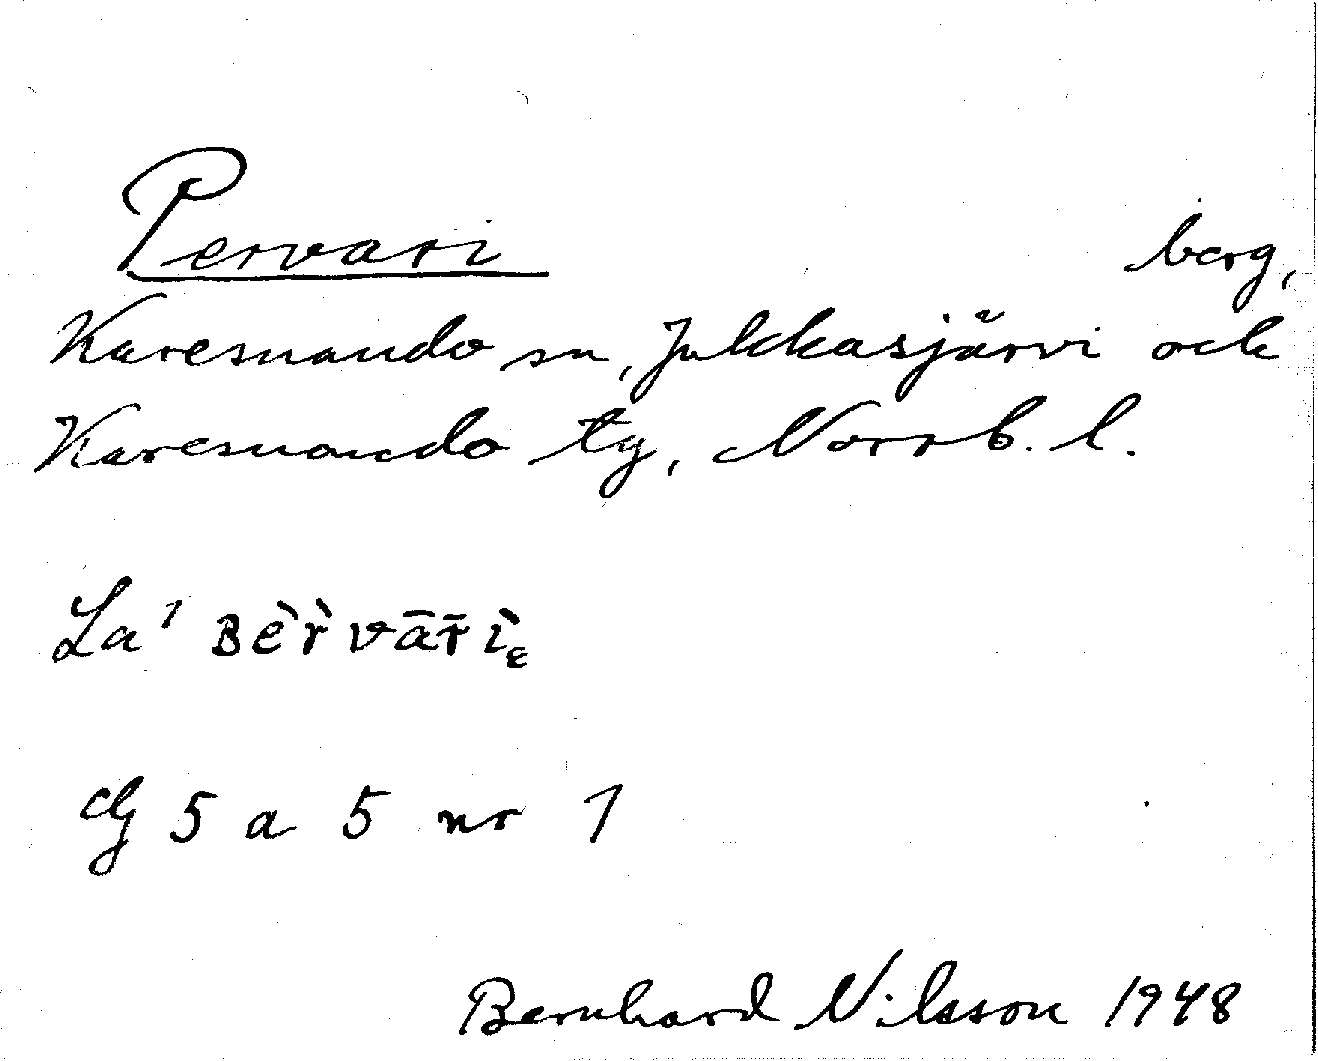 Pervari berg,
Karesuando sn, Jukkasjärvi och
Karesuando tg, Norrb. l.
La¹ ʙèr̀vār̄ìₑ
Gg 5 a 5 nr 1
Bernhard Nilsson 1948